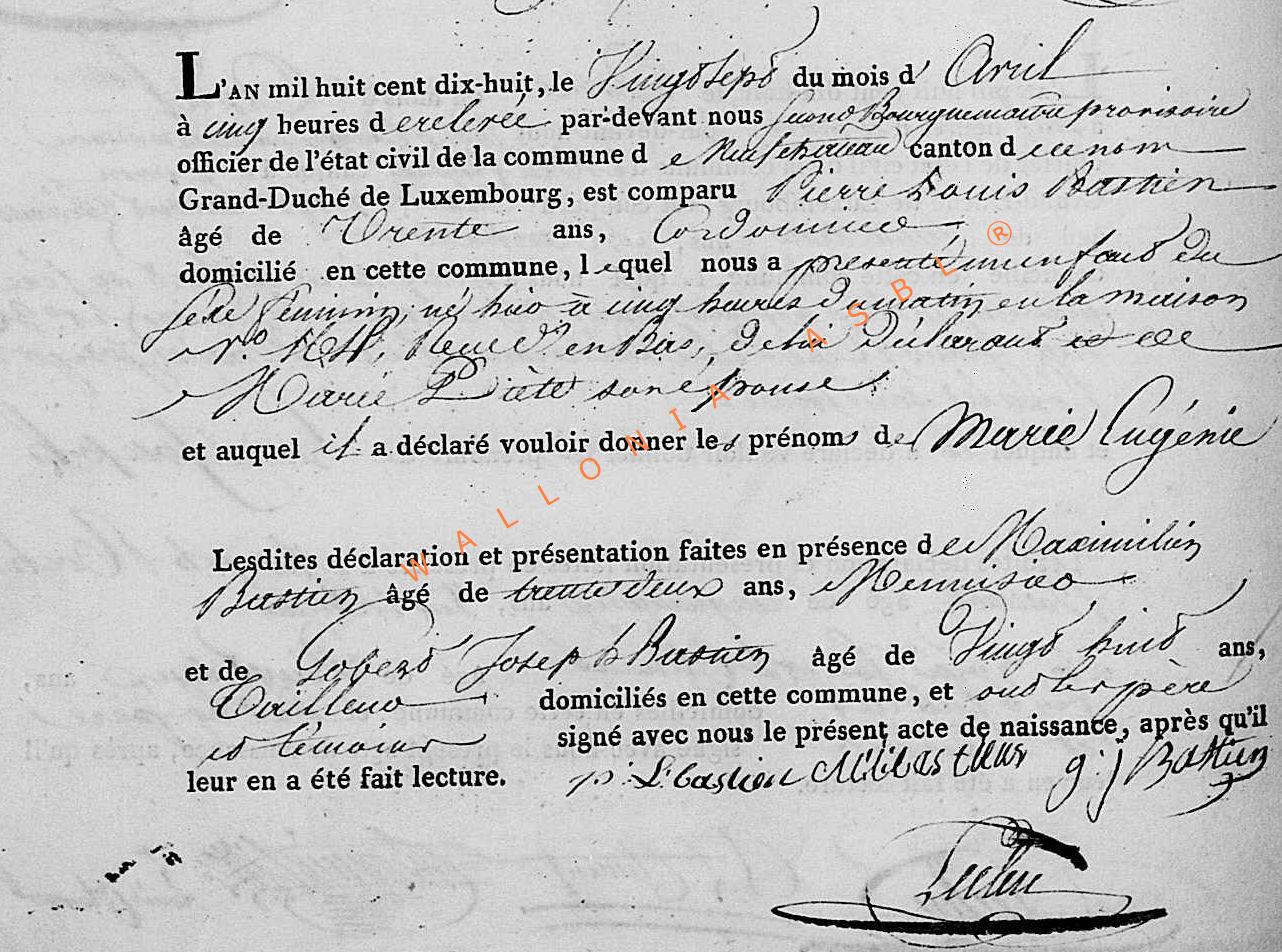 L'AN mil huit cent dix-huit, le Vingt sept du mois d' Avril
à cinq heures d e relevée par-devant nous second Bourguemaitre provisoire
officier de l'état civil de la commune d e Neufchateau canton d e ce nom
Grand-Duché de Luxembourg, est comparu Pierre Louis Bastien
âgé de Trente ans, Cordonnier
domicilié en cette commune, lequel nous a presenté un enfant du
sexe feminin, né hier a cinq heures du matin en la maison
N.o Rue d'en Bas, de lui Déclarant et de
Marie son épouse
et auquel il a déclaré vouloir donner les prénoms de Marie Eugénie
Lesdites déclaration et présentation faites en présence de Maximilien
Bastien âgé de trente deux ans, Menuisier
et de Gobert Joseph Bastien âgé de Vingt huit ans,
Tailleur domiciliés en cette commune, et ont les père
et témoins signé avec nous le présent acte de naissance, après qu'il
leur en a été fait lecture. p: L: bastien g: j Bastien
WALLONIA ASBL ®